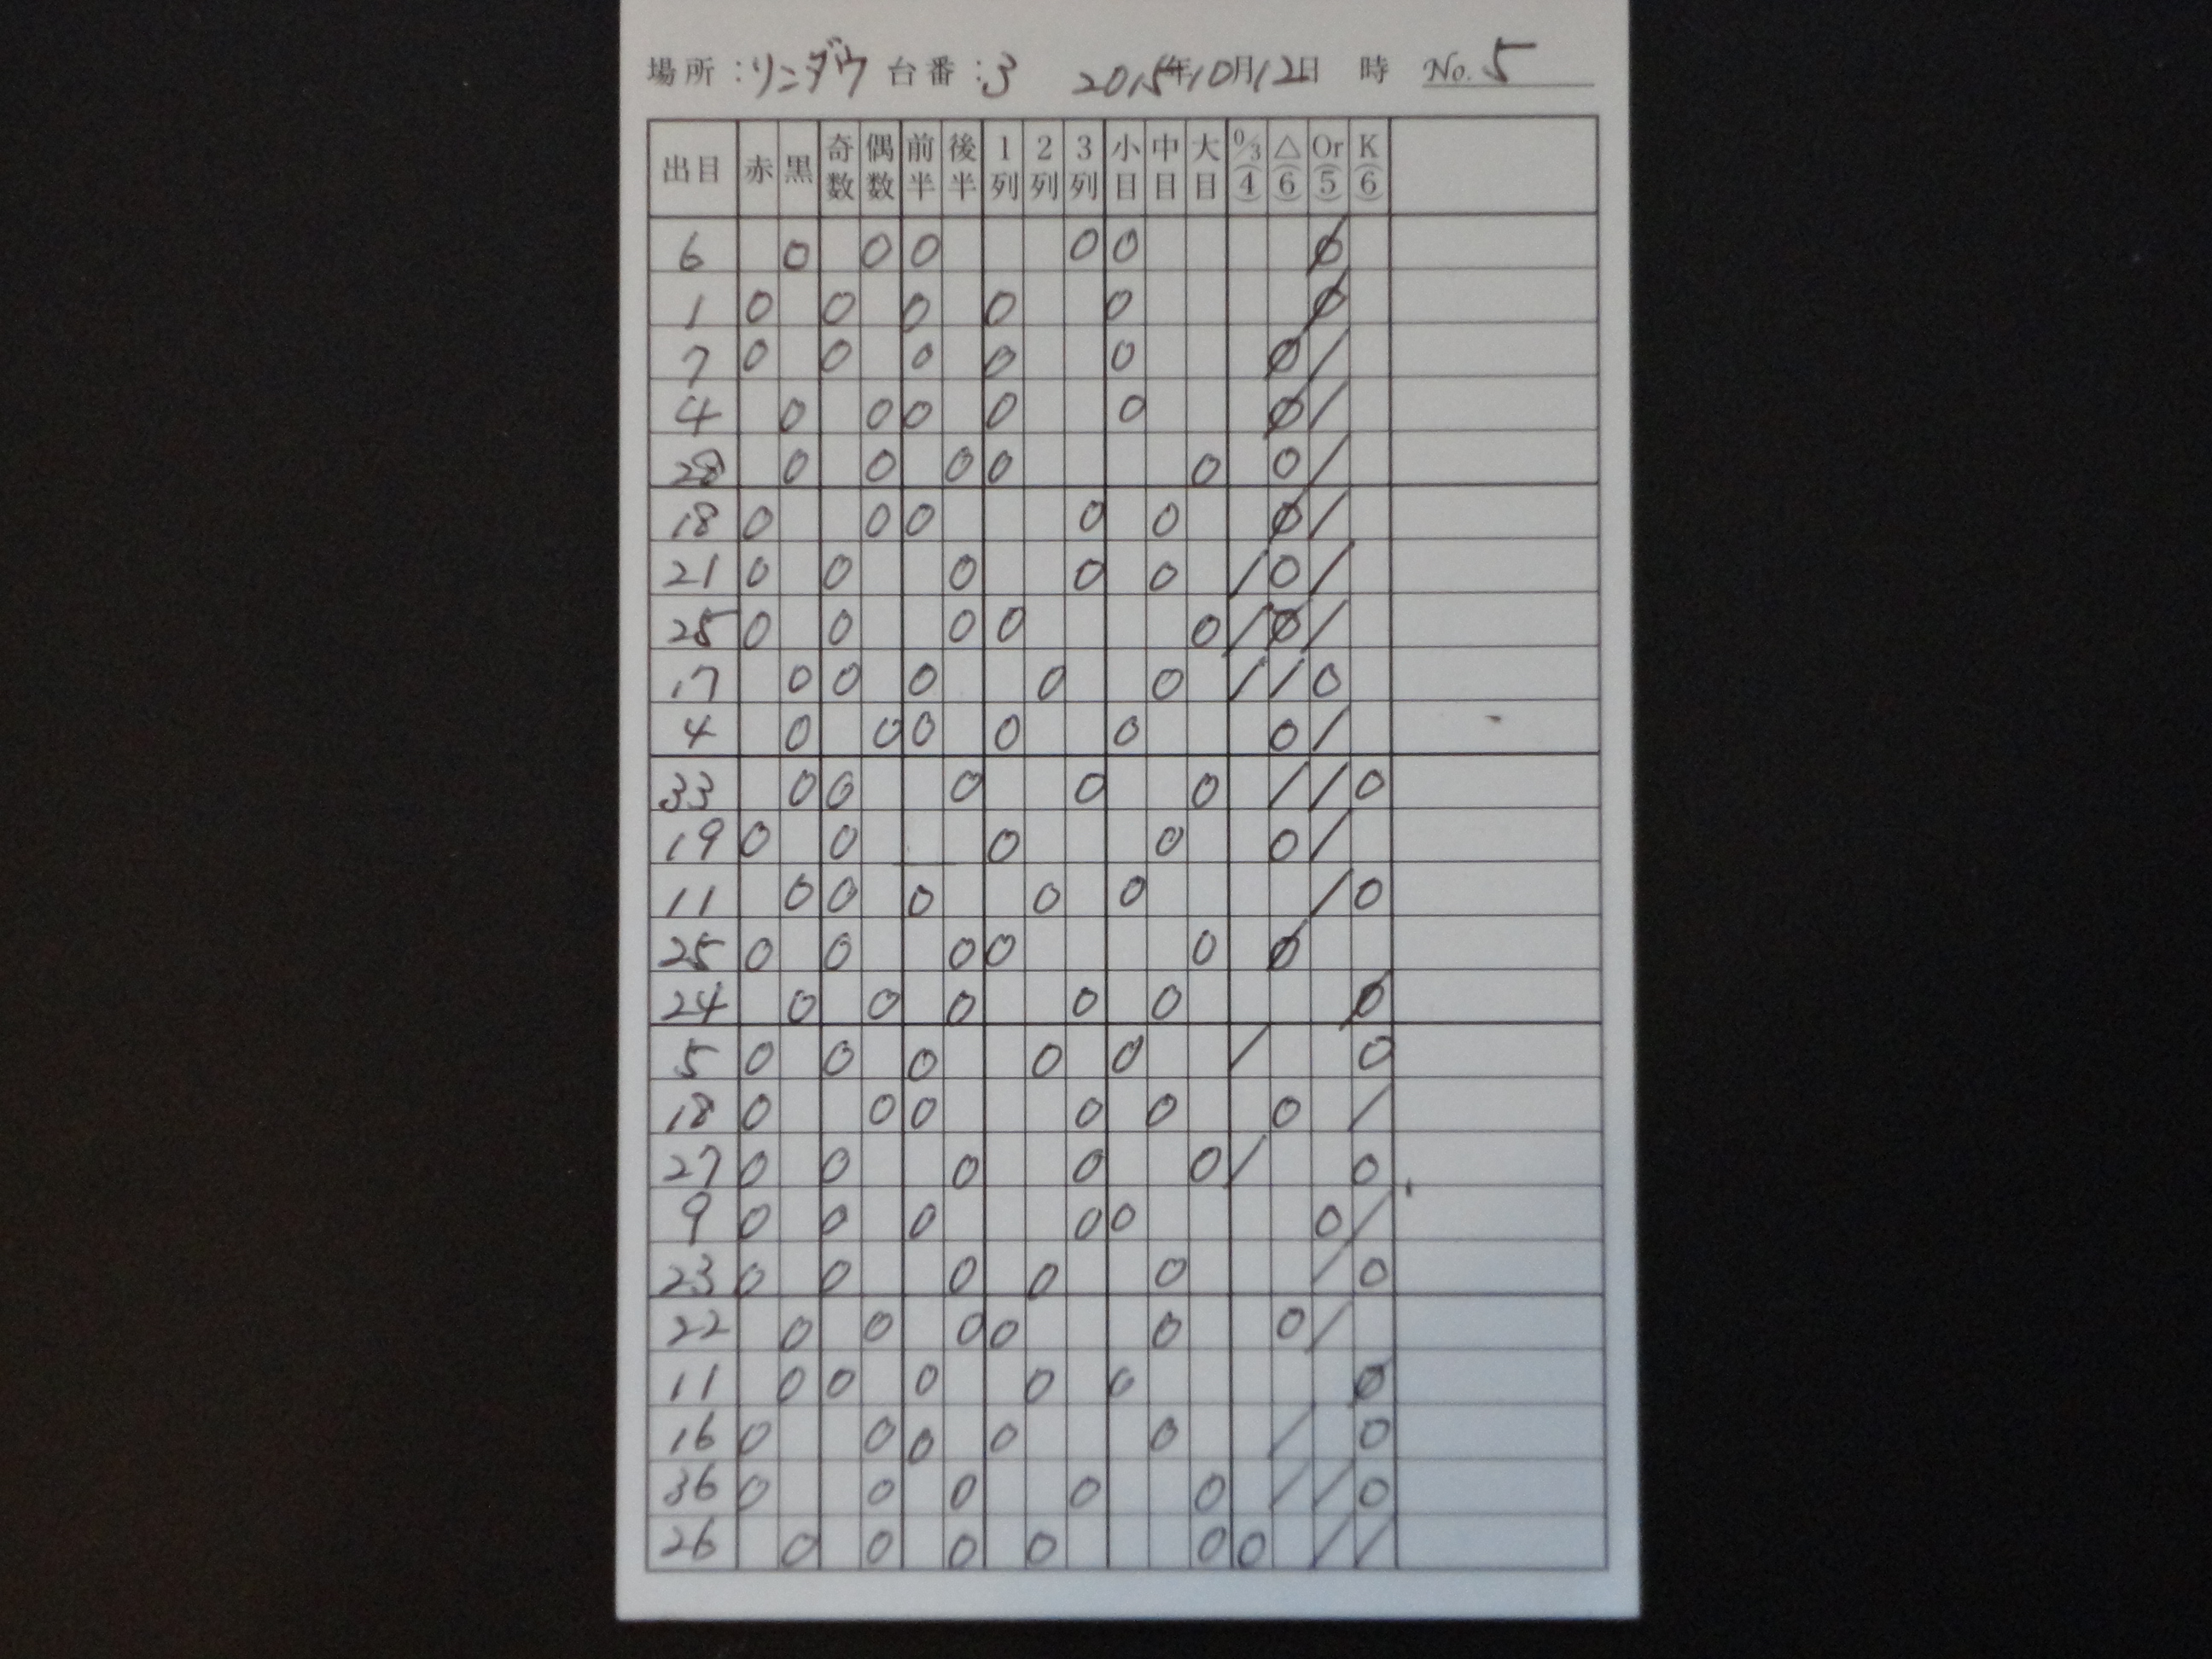 場所:リンダウ 台番:3 2015年10月12日 時 No. 5
出目 赤 黒 奇数 偶数 前半 後半 1列 2列 3列 小目 中目 大目 0/3(4) △(6) Or(5) K(6)
6 0 0 0 0 0 0
1 0 0 0 0 0 0
7 0 0 0 0 0 0 /
4 0 0 0 0 0 0 /
28 0 0 0 0 0 0 /
18 0 0 0 0 0 0 /
21 0 0 0 0 0 / 0 /
25 0 0 0 0 0 / 0 /
17 0 0 0 0 0 / / 0
4 0 0 0 0 0 0 /
33 0 0 0 0 0 / / 0
19 0 0 0 0 0 /
11 0 0 0 0 0 / 0
25 0 0 0 0 0 0
24 0 0 0 0 0 0
5 0 0 0 0 0 / 0
18 0 0 0 0 0 0 /
27 0 0 0 0 0 / 0
9 0 0 0 0 0 0 /
23 0 0 0 0 0 / 0
22 0 0 0 0 0 0 /
11 0 0 0 0 0 0
16 0 0 0 0 0 / 0
36 0 0 0 0 0 / / 0
26 0 0 0 0 0 0 / /